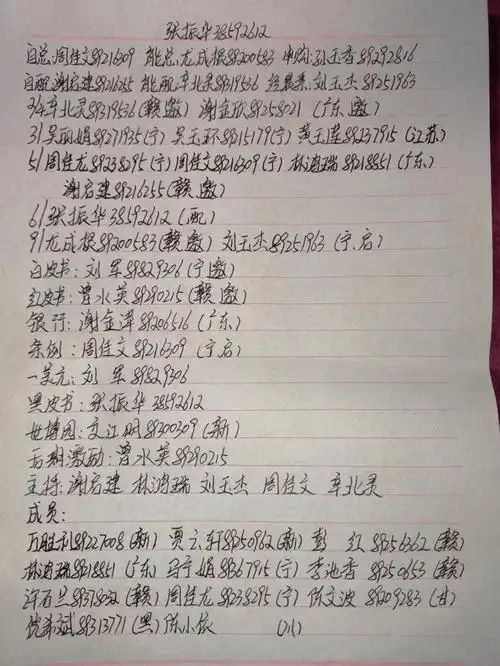 张振华38592612
自总:周佳文89216309 能总:龙成根89200583 申购:孙玉香89292816
自配:谢启建89216255 能配:辛北灵89319536 经晨系:刘玉杰89251963
3/4辛北灵89319536(赣.邀) 谢金欣89258021 (广东.邀)
31吴丽娟89271935(宁) 吴玉环89215179(宁) 黄玉莲89237915(江苏)
51周佳龙89238295(宁)周佳文89216309(宁)林鸿瑞89218851(广东)
谢启建89216255(赣.邀)
61张振华38592612(配)
91龙成根89200583(赣.邀) 刘玉杰89251963 (宁.启)
白皮书:刘 军89829306(宁.邀)
红皮书:曾水英89290215(赣.邀)
银行:谢金萍89206516(广东)
条例:周佳文89216309 (宁.启)
一美元:刘 军89829306
黑皮书:张振华 38592612
世博园:文江明89300309(新)
后期激励:曾水英89290215
主持:谢启建 林鸿瑞 刘玉杰 周佳文 辛北灵
成员:
万胜利89227008(新) 贾云轩89250962(新) 彭 红89256362(赣)
林鸿瑞89218851 (广东) 马宁娟89367915(宁) 李池香 89250653(赣)
许石兰(赣) 周佳龙89238295(宁) 陈文波 89209283(甘)
倪希斌89313771(黑)陈小依 (川)